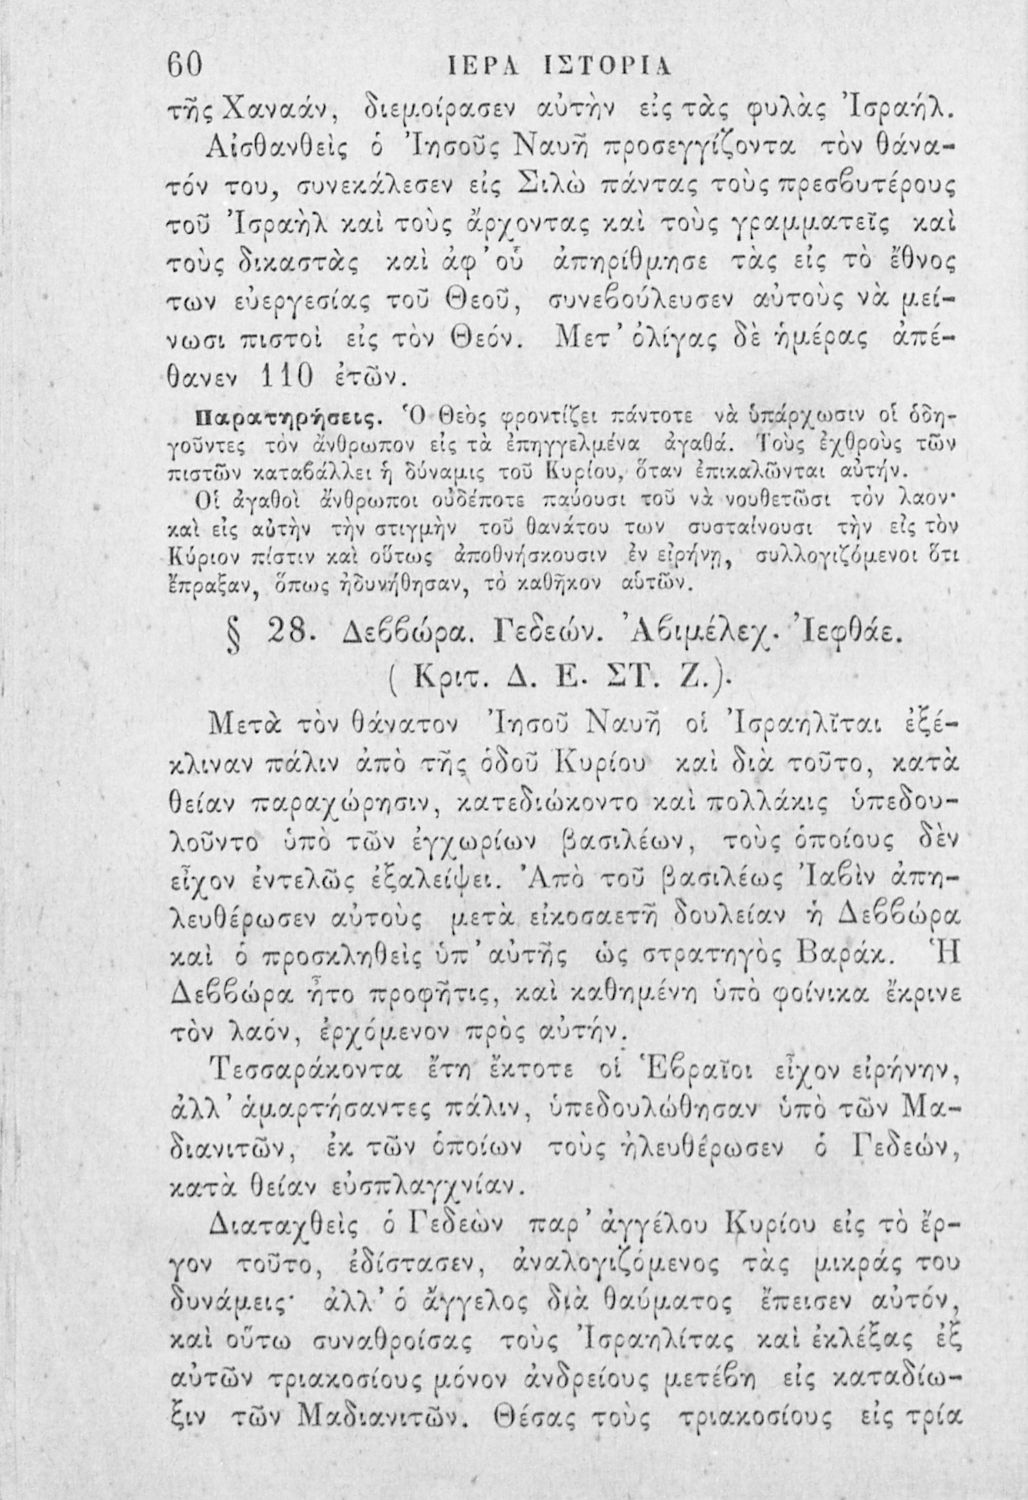 60 ΙΕΡΑ ΙΣΤΟΡΙΑ
τῆς Χαναάν, διεμοίρασεν αὐτὴν εἰς τὰς φυλὰς Ἰσραήλ.
Αἰσθανθεὶς ὁ Ἰησοῦς Ναυῆ προσεγγίζοντα τὸν θάνα-
τόν του, συνεκάλεσεν εἰς Σιλὼ πάντας τοὺς πρεσϐυτέρους
τοῦ Ἰσραὴλ καὶ τοὺς ἄρχοντας καὶ τοὺς γραμματεῖς καὶ
τοὺς δικαστὰς καὶ ἀφ’ οὗ ἀπηρίθμησε τὰς εἰς τὸ ἔθνος
των εὐεργεσίας τοῦ Θεοῦ, συνεϐούλευσεν αὐτοὺς νὰ μεί-
νωσι πιστοὶ εἰς τὸν Θεόν. Μετ’ ὀλίγας δὲ ἡμέρας ἀπέ-
θανεν 110 ἐτῶν.
Παρατηρήσεις. Ὁ Θεὸς φροντίζει πάντοτε νὰ ὑπάρχωσιν οἱ ὁδη-
γοῦντες τὸν ἄνθρωπον εἰς τὰ ἐπηγγελμένα ἀγαθά. Τοὺς ἐχθροὺς τῶν
πιστῶν καταϐάλλει ἡ δύναμις τοῦ Κυρίου, ὅταν ἐπικαλῶνται αὐτήν.
Οἱ ἀγαθοὶ ἄνθρωποι οὐδέποτε παύουσι τοῦ νὰ νουθετῶσι τὸν λαον·
καὶ εἰς αὐτὴν τὴν στιγμὴν τοῦ θανάτου των συσταίνουσι τὴν εἰς τὸν
Κύριον πίστιν καὶ οὕτως ἀποθνήσκουσιν ἐν εἰρήνῃ, συλλογιζόμενοι ὅτι
ἔπραξαν, ὅπως ἠδυνήθησαν, τὸ καθῆκον αὑτῶν.
§ 28. Δεϐϐώρα. Γεδεών. Ἀϐιμέλεχ. Ἰεφθάε.
( Κριτ. Δ. Ε. ΣΤ. Ζ.).
Μετὰ τὸν θάνατον Ἰησοῦ Ναυῆ οἱ Ἰσραηλῖται ἐξέ-
κλιναν πάλιν ἀπὸ τῆς ὁδοῦ Κυρίου καὶ διὰ τοῦτο, κατὰ
θείαν παραχώρησιν, κατεδιώκοντο καὶ πολλάκις ὑπεδου-
λοῦντο ὑπὸ τῶν ἐγχωρίων βασιλέων, τοὺς ὁποίους δὲν
εἶχον ἐντελῶς ἐξαλείψει. Ἀπὸ τοῦ βασιλέως Ἰαϐὶν ἀπη-
λευθέρωσεν αὐτοὺς μετὰ εἰκοσαετῆ δουλείαν ἡ Δεϐϐώρα
καὶ ὁ προσκληθεὶς ὑπ’ αὐτῆς ὡς στρατηγὸς Βαράκ. Ἡ
Δεϐϐώρα ἦτο προφῆτις, καὶ καθημένη ὑπὸ φοίνικα ἔκρινε
τὸν λαόν, ἐρχόμενον πρὸς αὐτήν.
Τεσσαράκοντα ἔτη ἔκτοτε οἱ Ἑϐραῖοι εἶχον εἰρήνην,
ἀλλ’ ἁμαρτήσαντες πάλιν, ὑπεδουλώθησαν ὑπὸ τῶν Μα-
διανιτῶν, ἐκ τῶν ὁποίων τοὺς ἠλευθέρωσεν ὁ Γεδεών,
κατὰ θείαν εὐσπλαγχνίαν.
Διαταχθεὶς ὁ Γεδεὼν παρ’ ἀγγέλου Κυρίου εἰς τὸ ἔρ-
γον τοῦτο, ἐδίστασεν, ἀναλογιζόμενος τὰς μικράς του
δυνάμεις· ἀλλ’ ὁ ἄγγελος διὰ θαύματος ἔπεισεν αὐτόν,
καὶ οὕτω συναθροίσας τοὺς Ἰσραηλίτας καὶ ἐκλέξας ἐξ
αὐτῶν τριακοσίους μόνον ἀνδρείους μετέϐη εἰς καταδίω-
ξιν τῶν Μαδιανιτῶν. Θέσας τοὺς τριακοσίους εἰς τρία